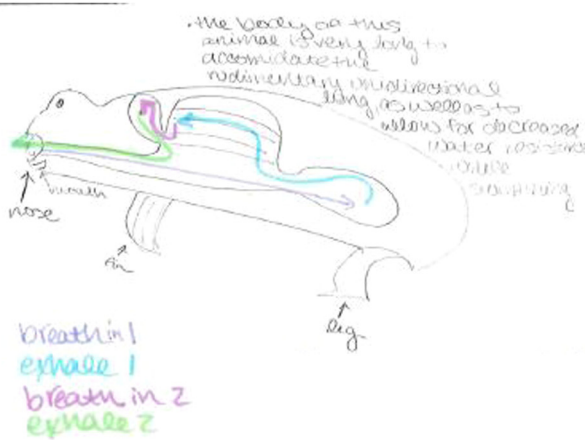 · the body of this
animal is very long to
accomidate the
rudimentary unidirectional
lung, as well as to
allow for decreased
water resistance
while
swimming
mouth
nose
fin
leg
breath in 1
exhale 1
breath in 2
exhale 2